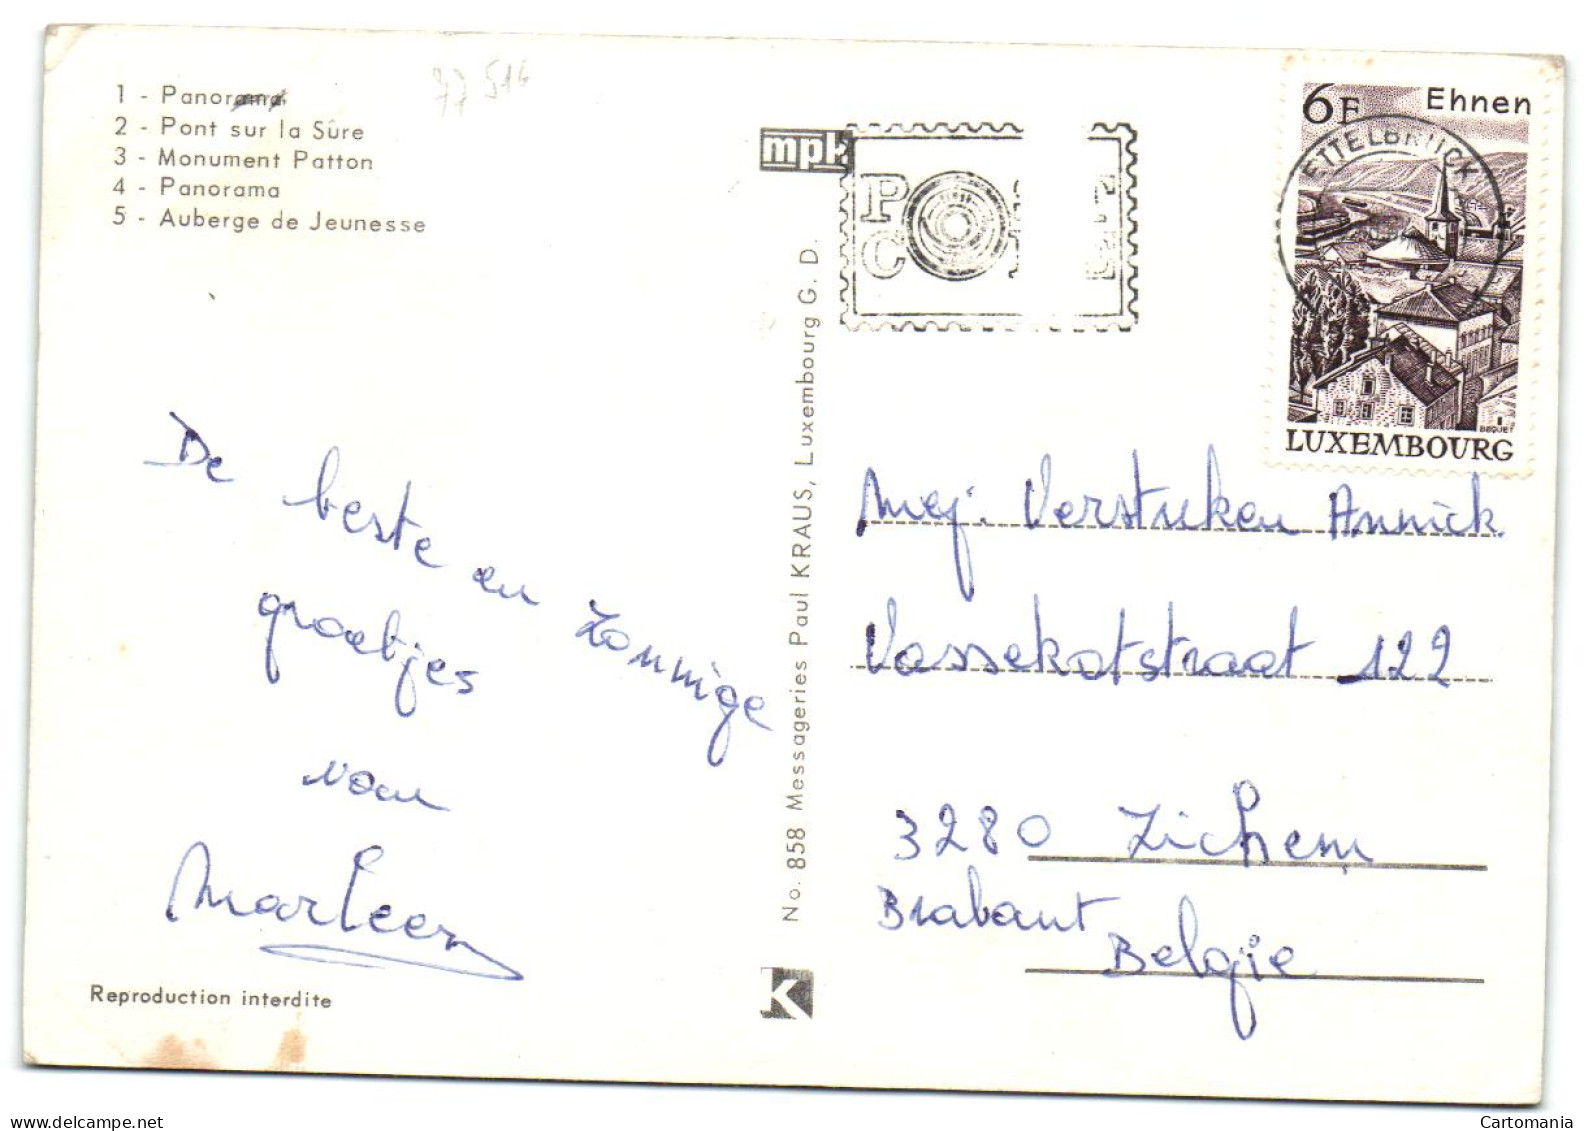 1 - Panorama
2 - Pont sur la Sûre
3 - Monument Patton
4 - Panorama
5 - Auberge de Jeunesse
77 514
mpk
6F Ehnen
ETTELBRUCK
BEQUET
LUXEMBOURG
De beste en zonnige
groetjes
van
Marleen
Reproduction interdite
No. 858 Messageries Paul KRAUS, Luxembourg G. D.
K
Mej. Verstuken Annick
Vossekotstraat 122
3280 Zichem
Brabant
België
www.delcampe.net
Cartomania